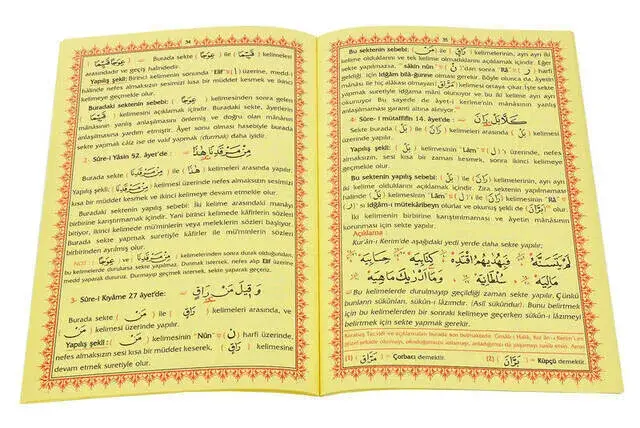 34
Burada sekte ( عِوَجًا ) ile ( قَيِّمًا ) kelimeleri
arasındadır ve geçiş halindedir.
Yapılış şekli: Birinci kelimenin sonunda "Elif" ( ا ) üzerine, medd-i
halinde nefes almaksızın sesimizi kısa bir müddet kesmek ve ikinci
kelimeye geçmekle olur.
Buradaki sektenin sebebi: ( عِوَجًا ) kelimesinden sonra gelen
( قَيِّمًا ) kelimesini açıklamak içindir. Buradaki sekte, âyetlerin
mânâsının yanlış anlaşılmasını önlemiş ve doğru olan mânânın
anlaşılmasına yardım etmiştir. Âyet sonu olması hasebiyle burada
sekte yapmak câiz ise de vakf yapmak (durmak) daha iyidir.
2- Sûre-i Yâsin 92. âyet'de: مِنْ مَرْقَدِنَا هٰذَا
Burada sekte ( مِنْ مَرْقَدِنَا ) ile ( هٰذَا ) kelimeleri arasında yapılır.
Yapılış şekli: ( مِنْ مَرْقَدِنَا ) kelimesi üzerinde nefes almaksızın sesimizi
kısa bir müddet kesmek ve ikinci kelimeye devam etmekle olur.
Buradaki sektenin yapılış sebebi: İki kelime arasındaki manâyı
birbirine karıştırmamak içindir. Yani birinci kelimede kâfirlerin sözleri
bitiyor, ikinci kelimede mü'minlerin veya meleklerin sözleri başlıyor.
Burada sekte yapmak suretiyle kâfirler ile mü'minlerin sözleri
birbirinden ayrılmış olur.
NOT: ( عِوَجًا ) ve ( مِنْ مَرْقَدِنَا ) kelimelerinden sonra durak olduğundan,
bu kelimelerde durulursa sekte yapılmaz. Durmak istersek, nefes alıp Elif üzerine
sekte yapmayız. Durmayıp geçmek istersek, sekte yaparak geçeriz.
3- Sûre-i Kıyâme 27 âyet'de: وَقِيلَ مَنْ رَاقٍ
Burada sekte ( مَنْ ) ile ( رَاقٍ ) kelimeleri arasında, ve
( مَنْ ) kelimesi üzerinde yapılır.
Yapılış şekli: ( مَنْ ) kelimesinin "Nûn" ( ن ) harfi üzerinde,
nefes almaksızın sesi kısa bir müddet keserek, ( رَاقٍ ) kelimesine
devam etmek suretiyle olur.
35
Bu sektenin sebebi: ( مَنْ ) ile ( رَاقٍ ) kelimelerinin, ayrı ayrı iki
kelime olduklarını ve tek kelime olmadıklarını açıklamak içindir. Eğer
sekte yapılmazsa, "sâkin nûn" ( نْ ) dan sonra "Râ" ( ر ) harfi
geldiği için idğâm bilâğunne olması gerekir. Böyle olunca da, âyetin
mânâsı ile hiç alâkası olmayan ( مَرَّاقٍ ) kelimesi ortaya çıkar. İşte sekte
yapmak suretiyle idğâma mâni olunuyor ve bu iki kelime ayrı ayrı
okunuyor Bu sayede de âyet-i kerime'nin mânâsının yanlış
anlaşılmaması garanti altına alınıyor.
4- Sûre-i mütaffifîn 14. âyet'de: كَلَّا بَلْ رَانَ
Sekte burada ( بَلْ ) ile ( رَانَ ) kelimeleri arasında ( بَلْ ) kelimesi
üzerinde yapılır.
Yapılış şekli: ( بَلْ ) kelimesinin "Lâm" ( ل ) ı üzerinde, nefes
almaksızın, sesi kısa bir zaman keserek, sonra ikinci kelimeye
geçmekle olur.
Bu sektenin yapılış sebebi: ( بَلْ ) ile ( رَانَ ) kelimelerinin, ayrı ayrı
kelime olduklarını açıklamak içindir. Zira sektenin yapılmaması
halinde ( بَلْ ) kelimesinin "Lâm" ( ل ) ı ile ( رَانَ ) kelimesinin "Râ"
( ر ) sı idğâm-ı mütekâribeyn olurlar ve okunuş şekli de ( بَرَّانَ ) olur.
İki kelimenin birbirine karıştırılmaması ve âyetin mânâsının
korunması için sekte yapılır.
Açıklama
Kur'ân-ı Kerim'de aşağıdaki yedi yerde daha sekte yapılır:
لَمْ يَتَسَنَّهْ فَبِهُدٰيهُمُ اقْتَدِهْ كِتَابِيَهْ حِسَابِيَهْ
مَالِيَهْ سُلْطَانِيَهْ وَمَا اَدْرٰيكَ مَاهِيَهْ
Bu kelimelerde durulmayıp geçildiği zaman sekte yapılır. Çünkü
bunların sükûnları, sükûn-ı lâzımdır. (Aslî sükûndur). Bunu belirtmek
için bu kelimelerden bir sonraki kelimeye geçerken sükûn-ı lâzımeyi
belirtmek için sekte yapmak gerekir.
(1) ( مَرَّاقٍ ) Çorbacı demektir. (2) ( بَرَّانَ ) Küpçü demektir.